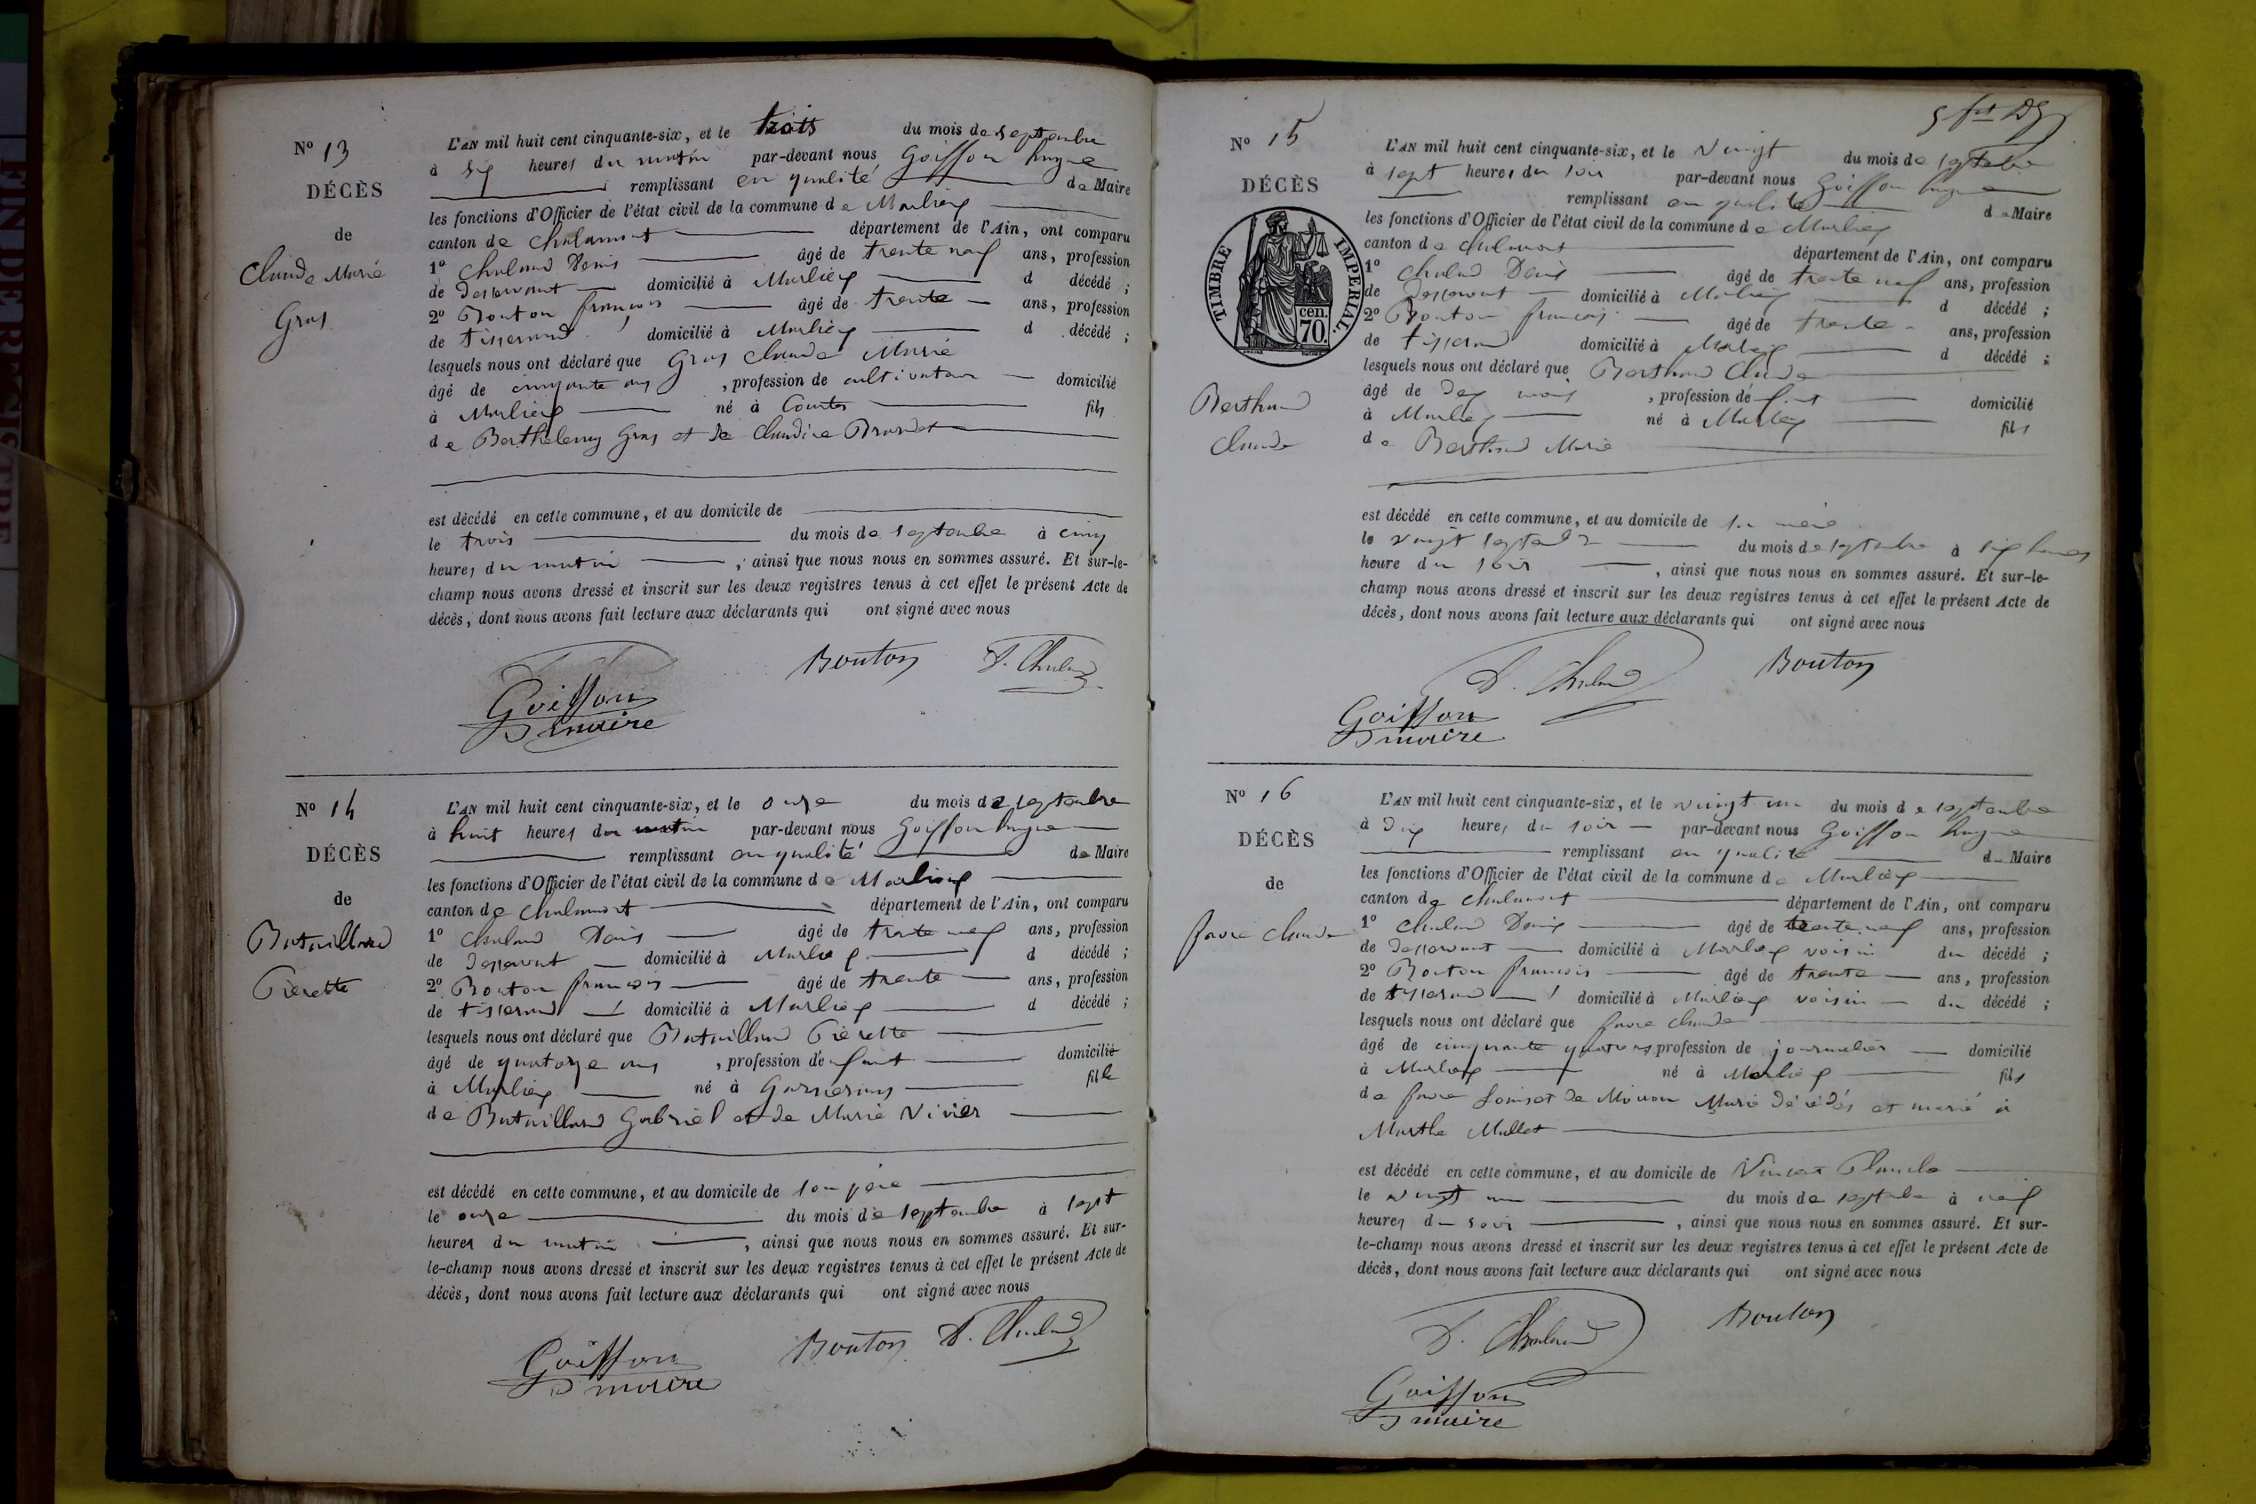 N° 13
DÉCÈS
de
Claude Marie
Gros
L'AN mil huit cent cinquante-six, et le trois du mois de septembre
à six heures du matin par-devant nous Goiffon
remplissant en qualité de Maire
les fonctions d'Officier de l'état civil de la commune de Marlieux
canton de Chalamont département de l'Ain, ont comparu
1° Chaland Denis âgé de trente neuf ans, profession
de desservant domicilié à Marlieux d décédé ;
2° Bouton françois âgé de trente ans, profession
de tisserand domicilié à Marlieux d décédé ;
lesquels nous ont déclaré que Gros Claude Marie
âgé de cinquante ans, profession de cultivateur domicilié
à Marlieux né à Courtes fils
de Barthelemy Gros et de Claudine
est décédé en cette commune, et au domicile de
le trois du mois de septembre à cinq
heures du matin, ainsi que nous nous en sommes assuré. Et sur-le-
champ nous avons dressé et inscrit sur les deux registres tenus à cet effet le présent Acte de
décès, dont nous avons fait lecture aux déclarants qui ont signé avec nous
Bouton D. Chaland
Goiffon
maire
N° 14
DÉCÈS
de
Bataillard
Pierette
L'AN mil huit cent cinquante-six, et le onze du mois de septembre
à huit heures du matin par-devant nous Goiffon
remplissant en qualité de Maire
les fonctions d'Officier de l'état civil de la commune de Marlieux
canton de Chalamont département de l'Ain, ont comparu
1° Chaland Denis âgé de trente neuf ans, profession
de desservant domicilié à Marlieux d décédé ;
2° Bouton françois âgé de trente ans, profession
de tisserand domicilié à Marlieux d décédé ;
lesquels nous ont déclaré que Bataillard Pierette
âgé de quatorze ans, profession d'enfant domicilié
à Marlieux né à fille
de Bataillard Gabriel et de Marie Vivier
est décédé en cette commune, et au domicile de son père
le onze du mois de septembre à sept
heures du matin, ainsi que nous nous en sommes assuré. Et sur-
le-champ nous avons dressé et inscrit sur les deux registres tenus à cet effet le présent Acte de
décès, dont nous avons fait lecture aux déclarants qui ont signé avec nous
Bouton D. Chaland
Goiffon
maire
N° 15
DÉCÈS
TIMBRE IMPERIAL.
cen.
70.
Berthand
Claude
L'AN mil huit cent cinquante-six, et le vingt du mois de septembre
à sept heures du soir par-devant nous Goiffon
remplissant en qualité de Maire
les fonctions d'Officier de l'état civil de la commune de Marlieux
canton de Chalamont département de l'Ain, ont comparu
1° Chaland Denis âgé de trente neuf ans, profession
de desservant domicilié à Marlieux d décédé ;
2° Bouton françois âgé de trente ans, profession
de tisserand domicilié à Marlieux d décédé ;
lesquels nous ont déclaré que Berthand Claude
âgé de dix mois, profession d'enfant domicilié
à Marlieux né à Marlieux fils
de Berthand Marie
est décédé en cette commune, et au domicile de sa mère
le vingt septembre du mois de septembre à six heures
heure du soir, ainsi que nous nous en sommes assuré. Et sur-le-
champ nous avons dressé et inscrit sur les deux registres tenus à cet effet le présent Acte de
décès, dont nous avons fait lecture aux déclarants qui ont signé avec nous
D. Chaland Bouton
Goiffon
maire
N° 16
DÉCÈS
de
favre Claude
L'AN mil huit cent cinquante-six, et le vingt un du mois de septembre
à dix heures du soir par-devant nous Goiffon
remplissant en qualité de Maire
les fonctions d'Officier de l'état civil de la commune de Marlieux
canton de Chalamont département de l'Ain, ont comparu
1° Chaland Denis âgé de trente neuf ans, profession
de desservant domicilié à Marlieux voisin du décédé ;
2° Bouton françois âgé de trente ans, profession
de tisserand domicilié à Marlieux voisin du décédé ;
lesquels nous ont déclaré que favre Claude
âgé de cinquante quatre ans, profession de journalier domicilié
à Marlieux né à Marlieux fils
de favre et de Marie décédés et marié à
Marthe Mallet
est décédé en cette commune, et au domicile de Vincent Planche
le vingt un du mois de septembre à neuf
heures du soir, ainsi que nous nous en sommes assuré. Et sur-
le-champ nous avons dressé et inscrit sur les deux registres tenus à cet effet le présent Acte de
décès, dont nous avons fait lecture aux déclarants qui ont signé avec nous
D. Chaland Bouton
Goiffon
maire